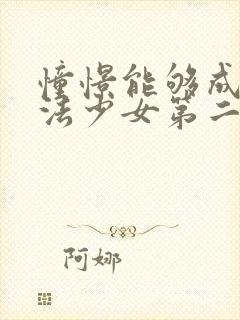 憧憬能够成
法少女第二
阿娜